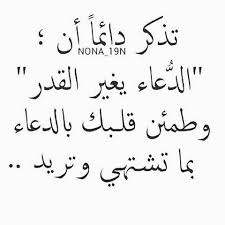 تذكر دائماً أن ؛
NONA_19N
"الدُّعاء يغير القدر"
وطمئن قلبك بالدعاء
بما تشتهي وتريد ..